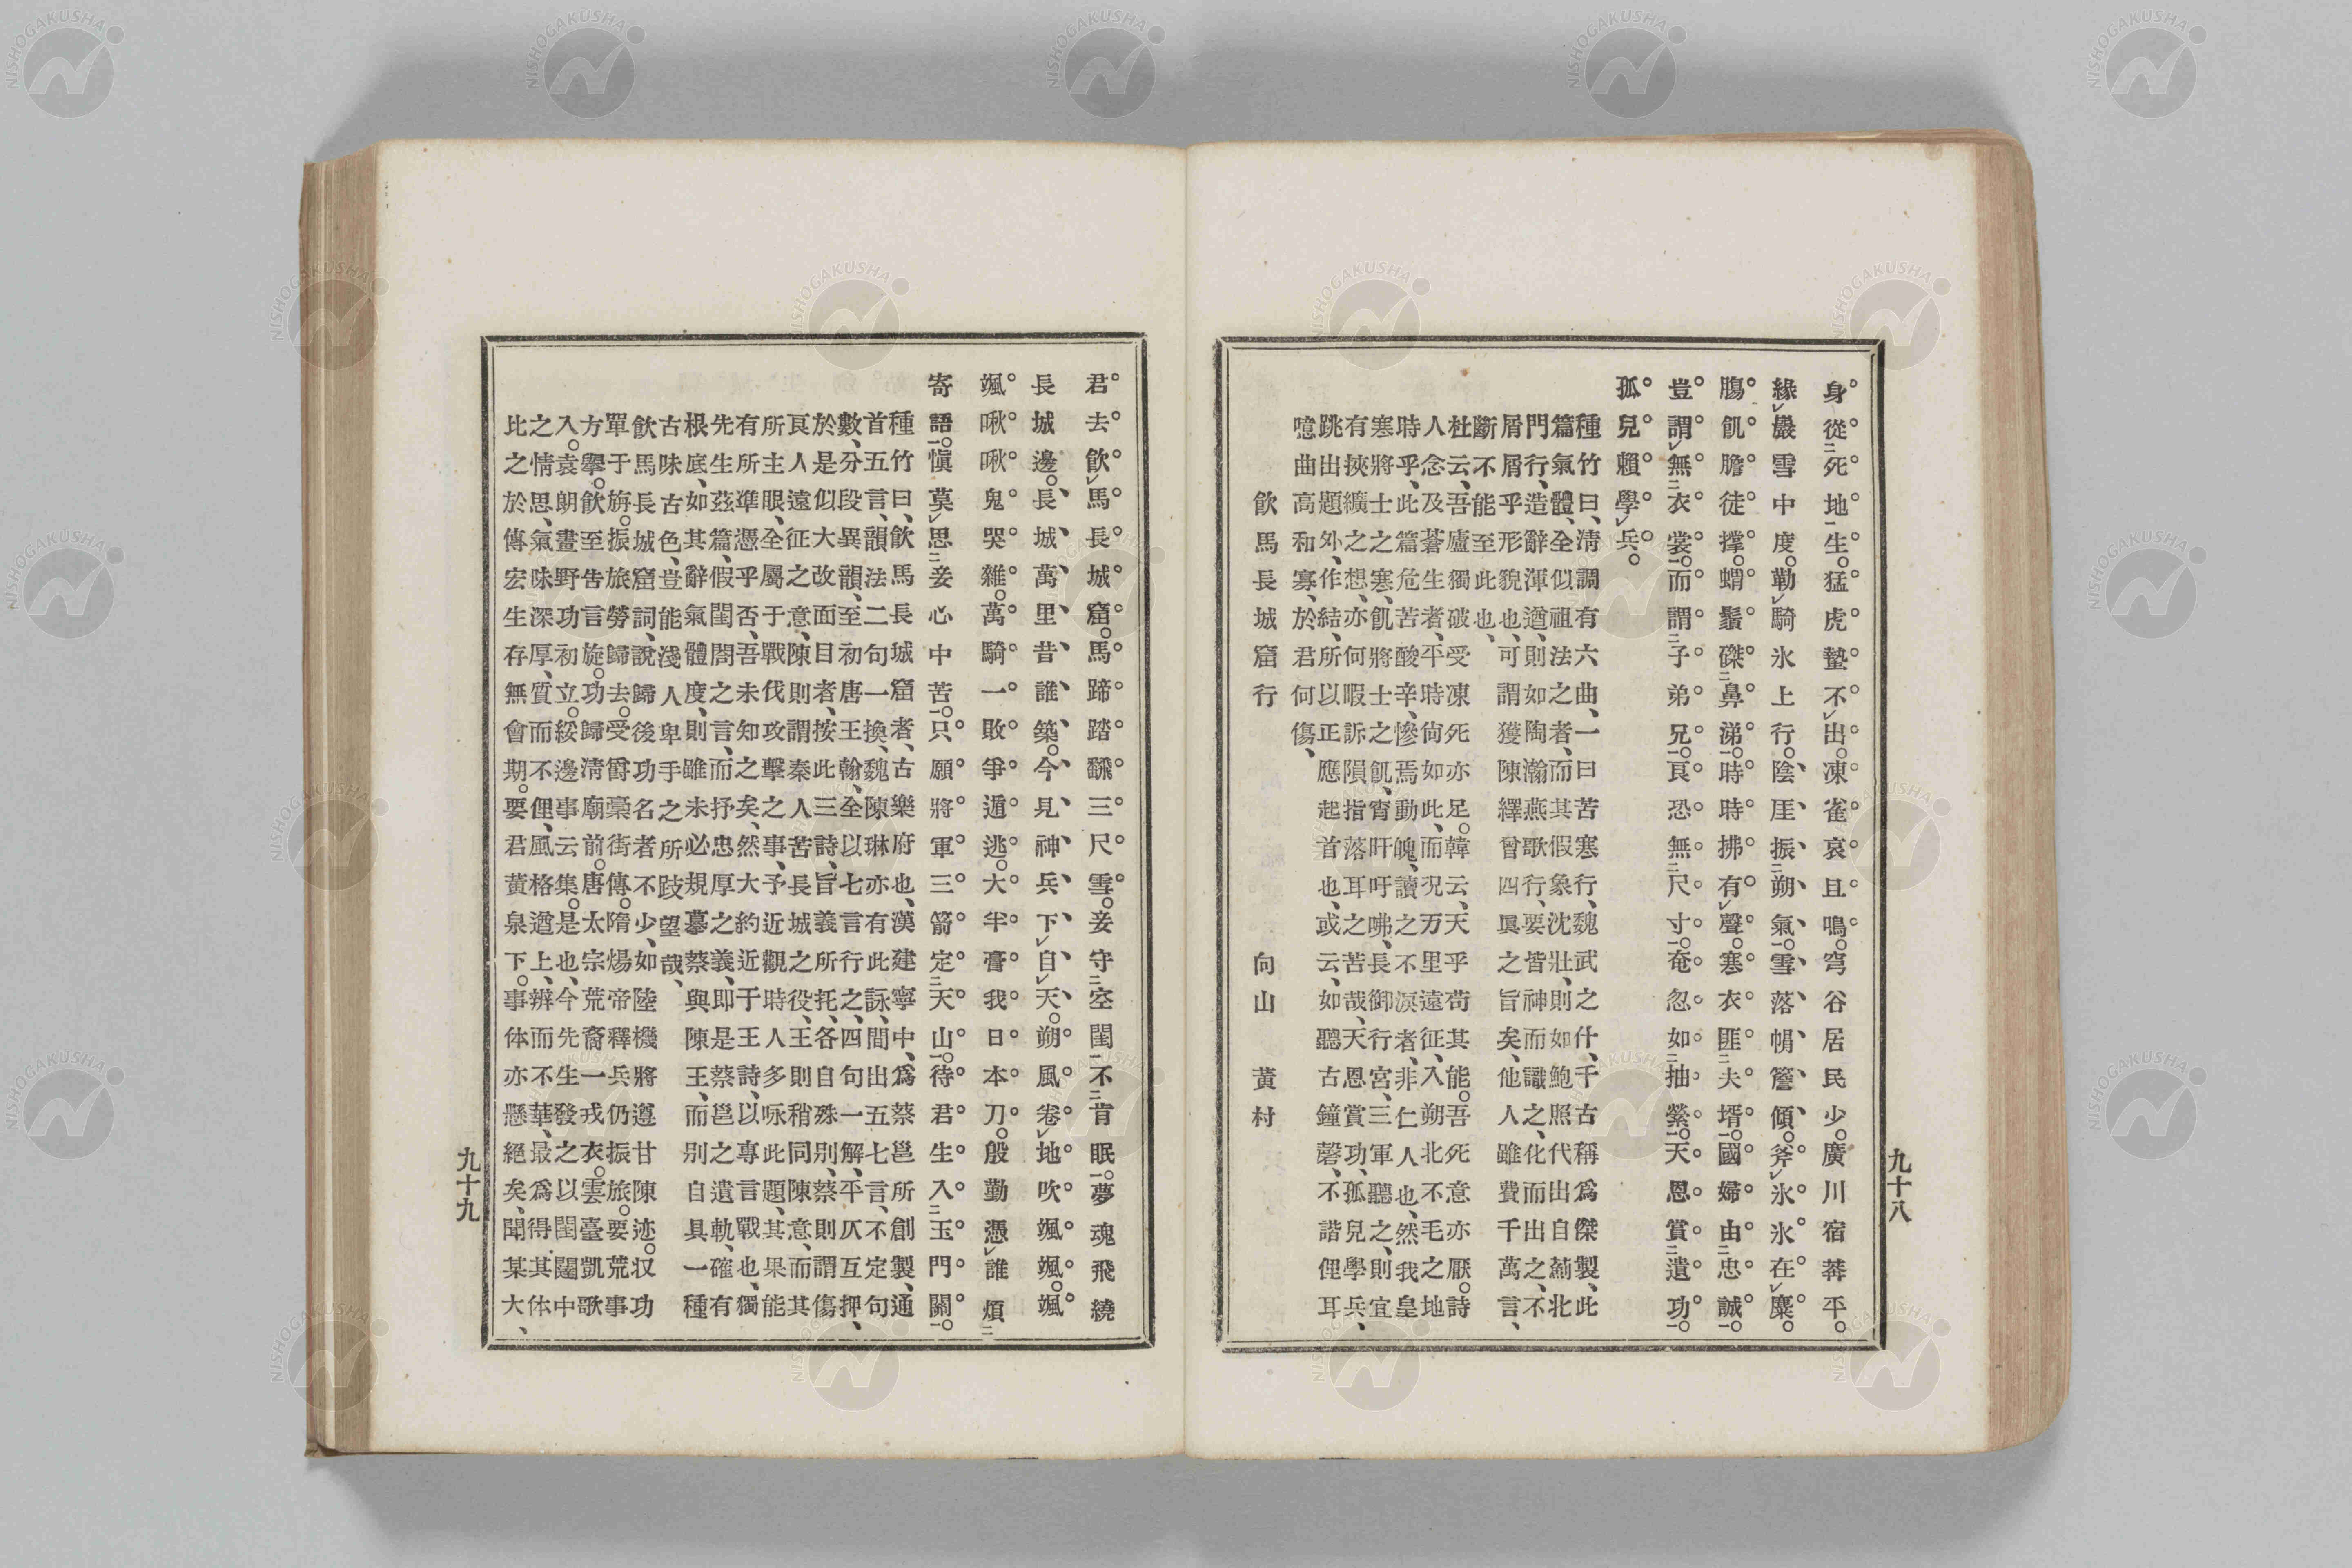 身從死地生。猛虎蟄不出。凍雀哀且鳴。穹谷居民少。廣川宿莽平。
緣巖雪中度。勒騎氷上行。陰厓振朔氣。雪落帽簷傾。斧氷氷在糜。
膓飢膽徒撑。蝟鬚磔鼻涕。時時拂有聲。寒衣匪夫壻。國婦由忠誠。
豈謂無衣裳。而謂子弟兄。良恐無尺寸。奄忽如抽縈。天恩賞遣功。
孤兒賴學兵。
種竹曰、清調有六曲、一曰苦寒行、魏武之什、千古稱爲傑製、此
篇氣體、全似祖法之者、而其假象沈壯、則如鮑照代出自薊北
門行、造辭渾遒、則如陶瀚燕歌行、要皆神而識之、化而出之、不
屑屑乎形貌也、可謂獲陳繹曾四眞之旨矣、他人雖費千萬言、
斷不能至此也、
杜云、吾廬獨破受凍死亦足。韓云、天乎苟其能。吾死意亦厭。詩
人念及蒼生者、平時尙如此、而況万里遠征、入朔北不毛之地
時乎、此篇危苦酸辛、慘焉動魄、讀之不淚者、非仁人也、然我皇
寒將士之寒、飢將士之飢、宵旰吁咈、長御行宮、三軍聽之、則宜
有挾纊之想、亦何暇訴隕指落耳之苦哉、天恩賞功、孤兒學兵、
跳出題外、作結、所以正應起首也、或云、如聽古鐘磬、不諧俚耳
噫曲高和寡、於君何傷、
飮馬長城窟行 向山黃村
九十八
君去飮馬長城窟。馬蹄踏飜三尺雪。妾守空閨不肯眠。夢魂飛繞
長城邊。長城萬里昔誰築。今見神兵下自天。朔風卷地吹颯颯。颯
颯啾啾鬼哭雜。萬騎一敗爭遁逃。大半膏我日本刀。殷勤憑誰煩
寄語。愼莫思妾心中苦。只願將軍三箭定天山。待君生入玉門關。
種竹曰、飮馬長城窟者、古樂府也、漢建寧中、爲蔡邕所創製、通
首五言、韻法二句一換、魏陳琳亦有此詠、間出五七言、不定句
數、分段異韻、至初唐王翰、全以七言行之、四句一解、平仄互押、
於是似大改面目者、按此三詩、旨義所托、各自殊別、蔡則謂傷
良人遠征之意、陳則謂秦人苦長城之役、王則稍同陳意、而其
所主眼、全屬于戰伐攻擊之事、予近觀時人多咏此題、其果能
有所準憑乎否、吾未知之矣、然大約近于王詩、以專言戰也、獨
先生玆篇假閨閤之言、而抒忠厚之義、卽是蔡邕之遺軌、確有
根底、如其辭氣體度、則雖未必規摹蔡與陳王、而別自具一種
古味古色、豈能淺人卑手之所跂望哉、
飮馬長城窟詞、說歸後功名者不少、如陸機將遵甘陳迹。収功
單于旃。振旅勞歸去。受爵藁街傳。隋煬帝釋兵仍振旅。要荒事
方擧。飮至告言旋。功歸淸廟前。唐太宗荒裔一戎衣。雲臺凱歌
入。袁朗晝野功初立。綏邊事云集。是也、今先生發之以閨閫中
之情思、氣味深厚、質而不俚、風格遒上、辨而不華、最爲得其体、
比之於傳宏生存無會期。要君黃泉下。事体亦懸絕矣、聞某大、
九十九
NISHOGAKUSHA